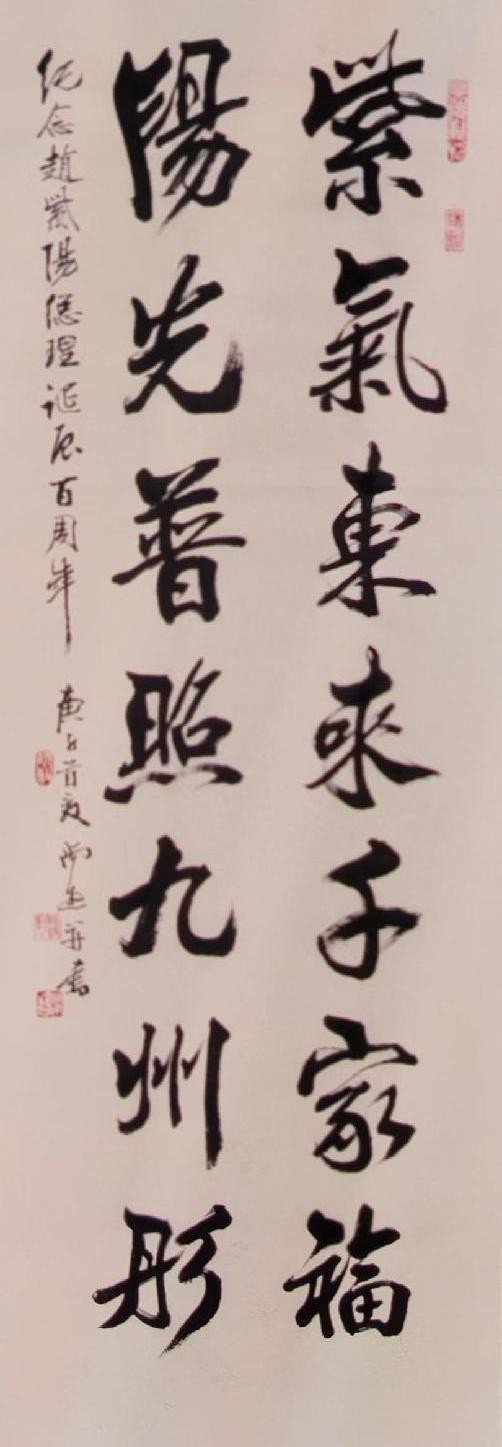 紫氣東來千家福
陽光普照九州彤
纪念趙紫陽總理诞辰百周年 庚子首夏